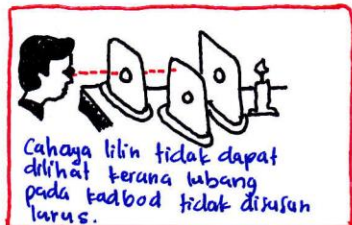 Cahaya lilin tidak dapat
dilihat kerana lubang
pada kadbod tidak disusun
lurus.